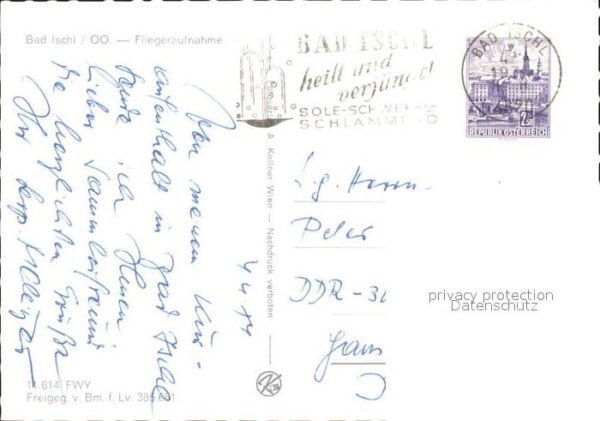 Bad Ischl / OÖ. — Fliegeraufnahme
BAD ISCHL
heilt und
verjüngt
SOLE-SCHWEFEL-
SCHLAMMBAD
BAD ISCHL
REPUBLIK ÖSTERREICH
Von meinem Kur-
aufenthalt in Bad Ischl
sende ich Ihnen
lieber Sammlerfreund
die herzlichsten Grüße
Ihr
A. Kellner Wien — Nachdruck verboten
S.g. Herrn
Peter
DDR-
privacy protection
Datenschutz
11.614 FWY
Freigeg. v. Bm. f. Lv.